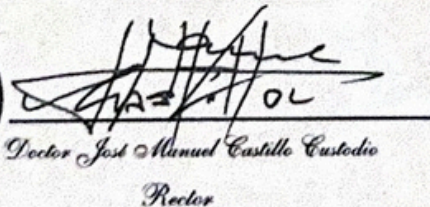 Doctor José Manuel Castillo Custodio
Rector